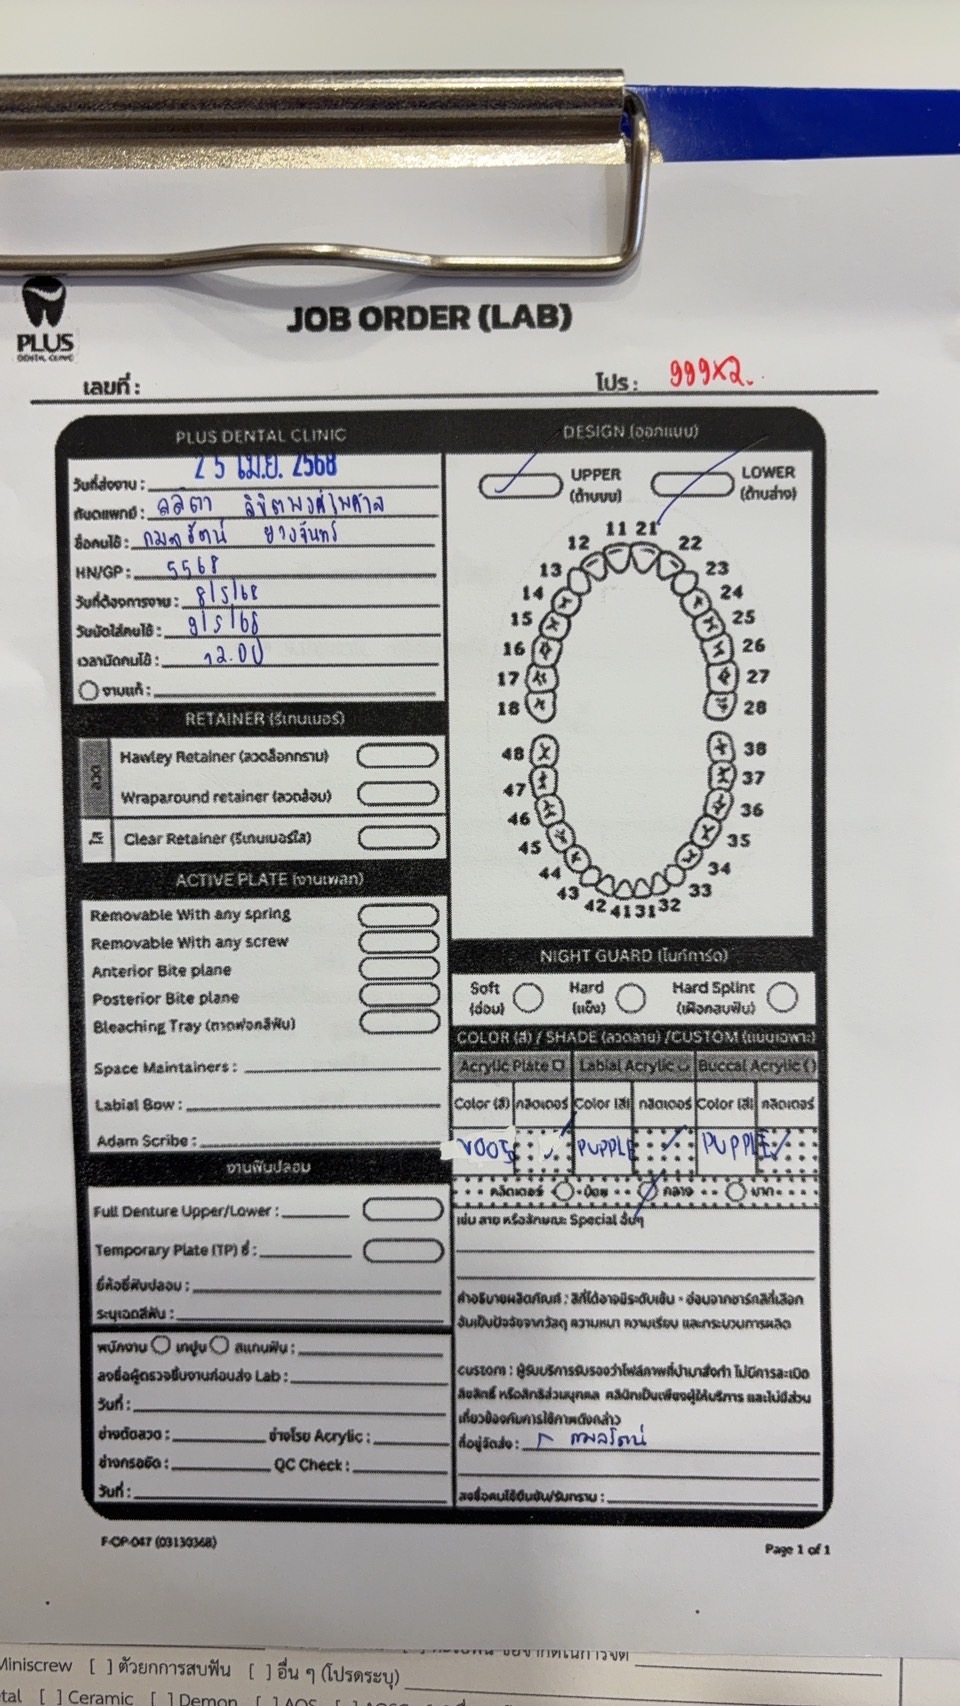 PLUS
DENTAL CLINIC
JOB ORDER (LAB)
เลขที่ :
โปร : 999x2.
PLUS DENTAL CLINIC
วันที่ส่งงาน : 25 เม.ย. 2568
ทันตแพทย์ : ลลิตา ลิขิตพงศ์ไพศาล
ชื่อคนไข้ : กมลรัตน์ ยางจันทร์
HN/GP : 5568
วันที่ต้องการงาน : 8/5/68
วันนัดใส่คนไข้ : 9/5/68
เวลานัดคนไข้ : 12.00
งานแก้ :
RETAINER (รีเทนเนอร์)
ลวด
Hawley Retainer (ลวดล็อกกราม)
Wraparound retainer (ลวดล้อม)
ใส
Clear Retainer (รีเทนเนอร์ใส)
ACTIVE PLATE (งานเพลท)
Removable With any spring
Removable With any screw
Anterior Bite plane
Posterior Bite plane
Bleaching Tray (ถาดฟอกสีฟัน)
Space Maintainers :
Labial Bow :
Adam Scribe :
งานฟันปลอม
Full Denture Upper/Lower :
Temporary Plate (TP) ซี่ :
ยี่ห้อซี่ฟันปลอม :
ระบุเฉดสีฟัน :
พนักงาน เทปูน สแกนฟัน :
ลงชื่อผู้ตรวจชิ้นงานก่อนส่ง Lab :
วันที่ :
ช่างดัดลวด : ช่างโรย Acrylic :
ช่างกรอขัด : QC Check :
วันที่ :
DESIGN (ออกแบบ)
UPPER
(ด้านบน)
LOWER
(ด้านล่าง)
11 21
12 22
13 23
14 24
15 25
16 26
17 27
18 28
48 38
47 37
46 36
45 35
44 34
43 33
42 41 31 32
NIGHT GUARD (ไนท์การ์ด)
Soft
(อ่อน)
Hard
(แข็ง)
Hard Splint
(เฝือกสบฟัน)
COLOR (สี) / SHADE (ลวดลาย) /CUSTOM (แบบเฉพาะ)
Acrylic Plate Labial Acrylic Buccal Acrylic
Color (สี) กลิตเตอร์ Color (สี) กลิตเตอร์ Color (สี) กลิตเตอร์
V005 PUPPLE PUPPLE
กลิตเตอร์ น้อย กลาง มาก
เช่น ลาย หรือลักษณะ Special อื่นๆ
คำอธิบายผลิตภัณฑ์ : สีที่ได้อาจมีระดับเข้ม - อ่อนจากชาร์ทสีที่เลือก
อันเป็นปัจจัยจากวัสดุ ความหนา ความเรียบ และกระบวนการผลิต
custom : ผู้รับบริการรับรองว่าไฟล์ภาพที่นำมาสั่งทำ ไม่มีการละเมิด
ลิขสิทธิ์ หรือสิทธิส่วนบุคคล คลินิกเป็นเพียงผู้ให้บริการ และไม่มีส่วน
เกี่ยวข้องกับการใช้ภาพดังกล่าว
ที่อยู่จัดส่ง : กมลรัตน์
ลงชื่อคนไข้ยืนยัน/รับทราบ :
F-OP-047 (03130368)
Page 1 of 1
Miniscrew [ ] ตัวยกการสบฟัน [ ] อื่น ๆ (โปรดระบุ)
[ ] Ceramic [ ] Damon [ ] AOS